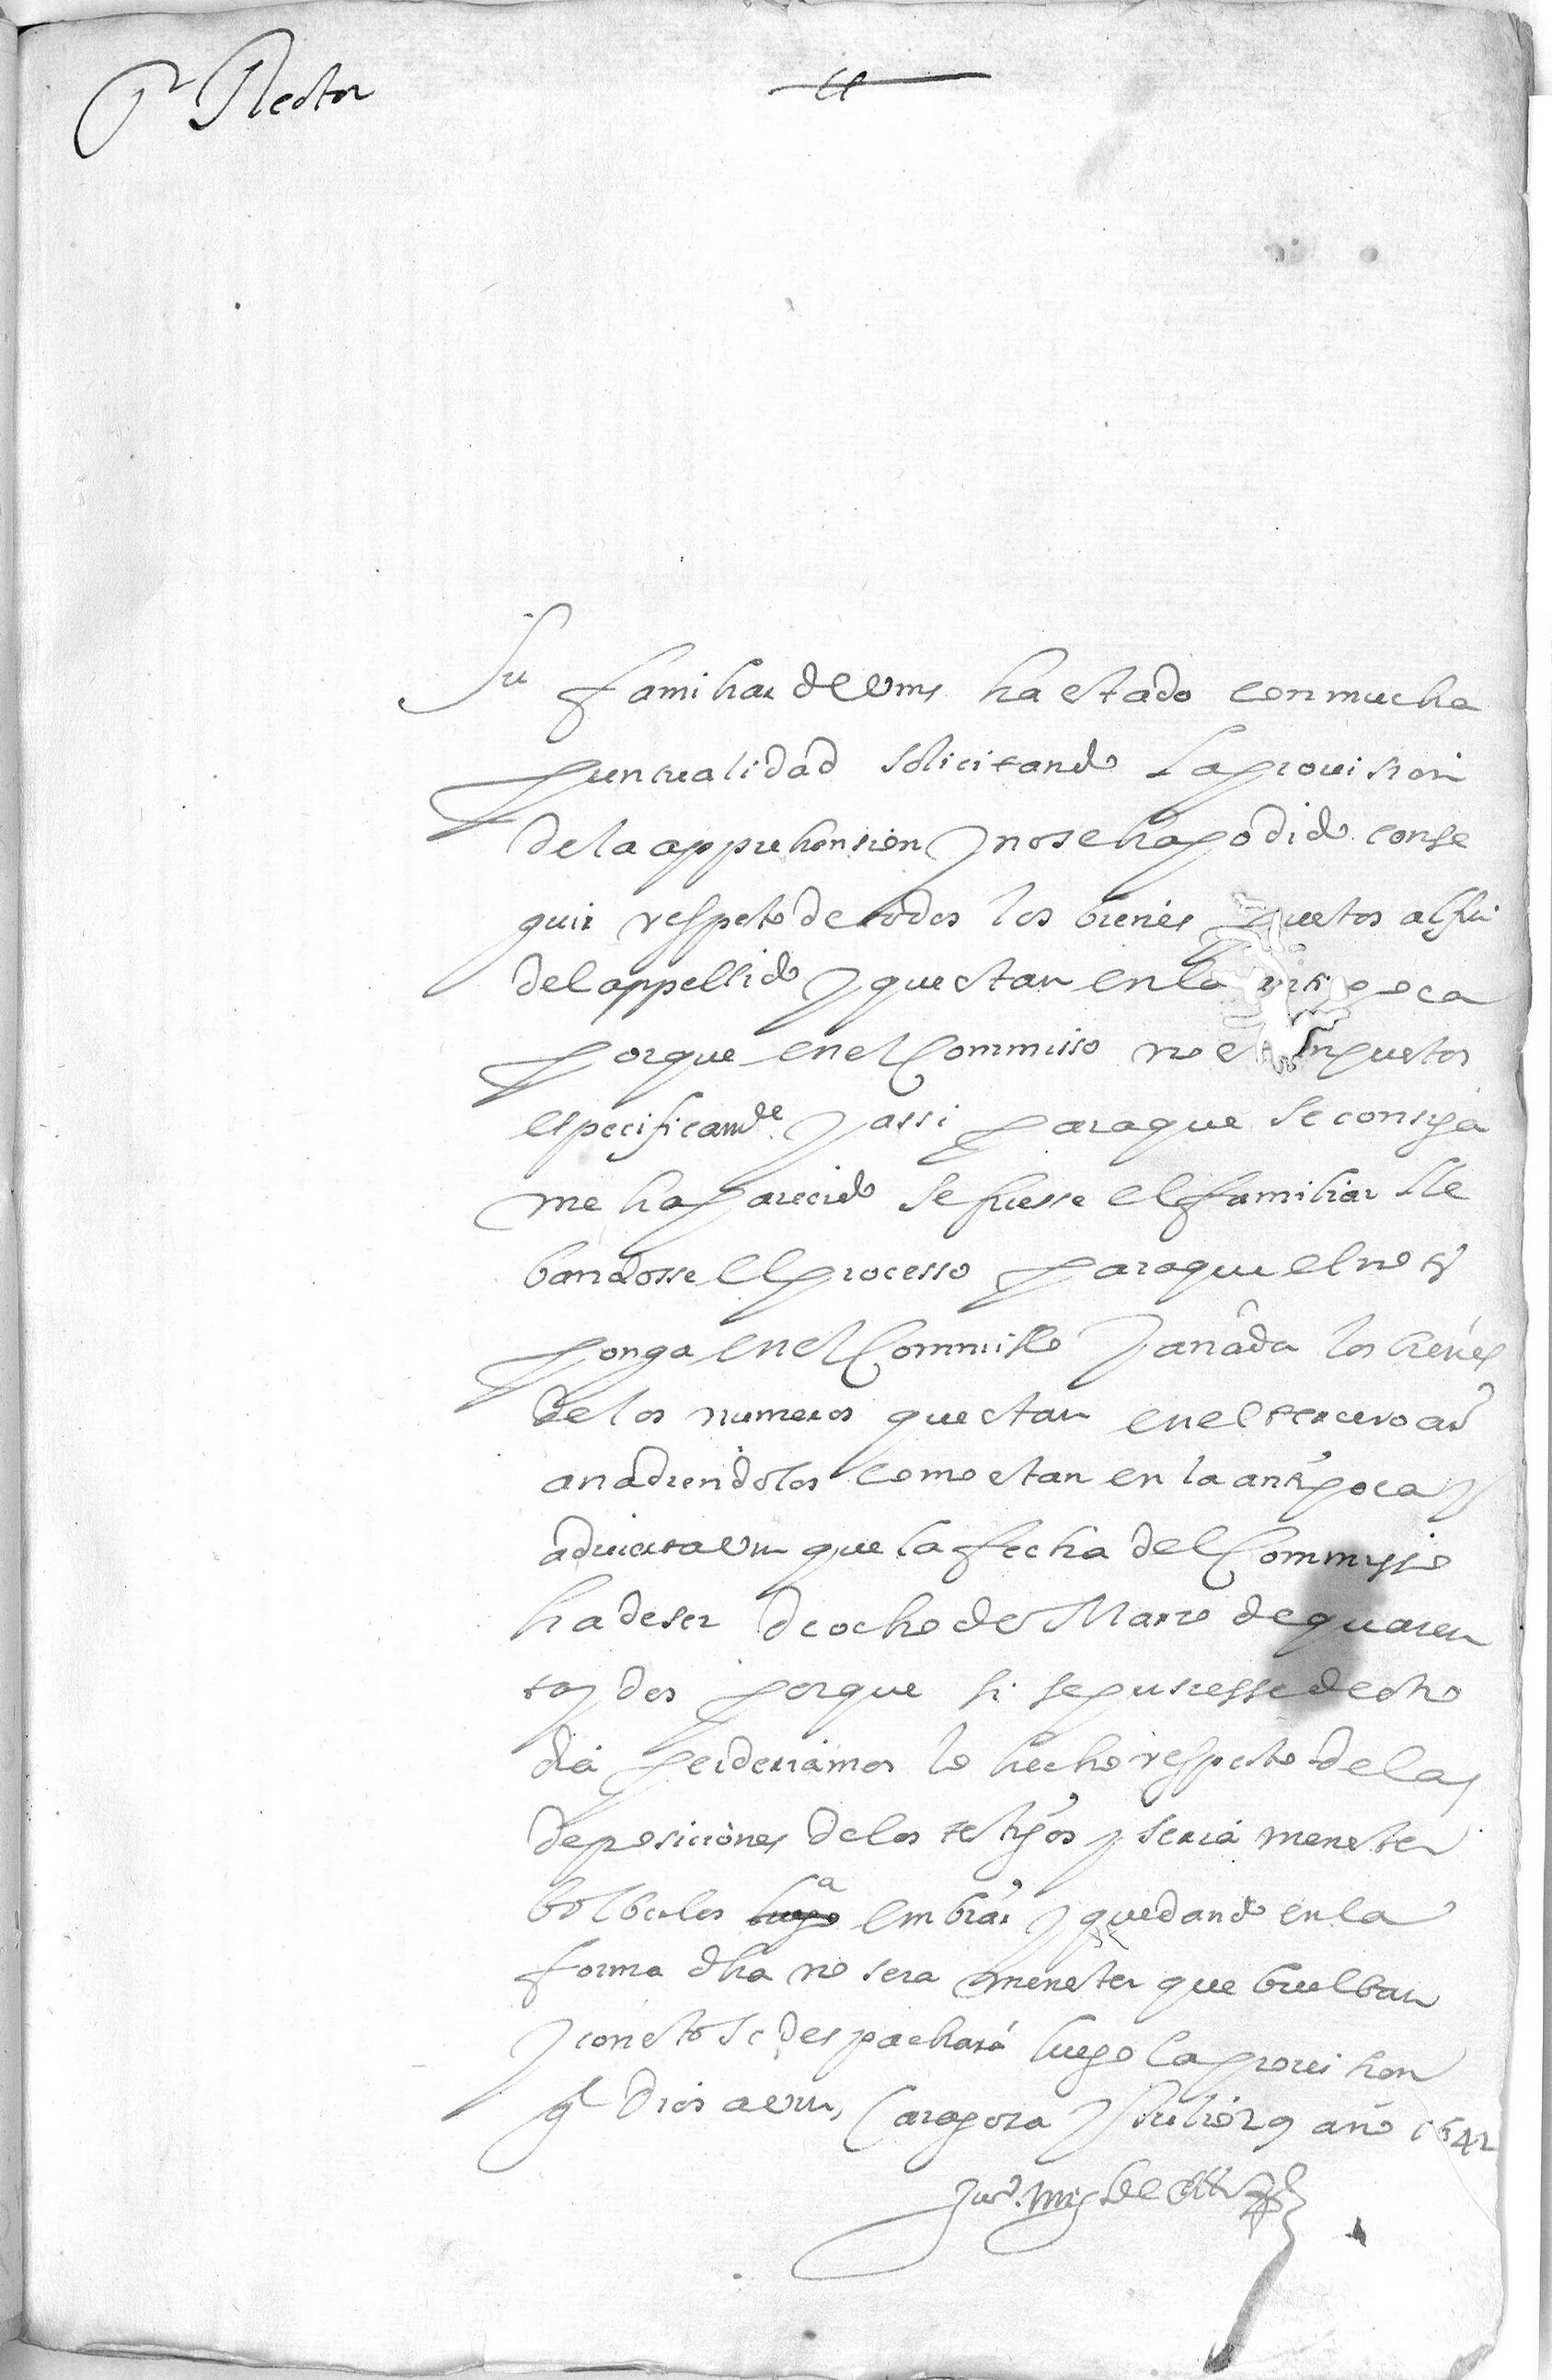 Pr Rector
Su familiar de Vms ha estado con mucha
puntualidad solicitando la provision
de la apprehension y no se ha podido conse
guir respeto de todos los bienes puestos al fin
del appellido y que estan en la antipoca
porque en el Commisso no estan puestos
especificamte. y assi para que se consiga
me ha parecido se fuesse el familiar lle
bandosse el processo para que el noto
ponga en el Commisso y anãda los bienes
de los numeros que estan en el tercero art
anadiendolos como estan en la antipoca y
advierta Vm que la fecha del Commisso
ha de ser de ocho de Marzo de quaren
ta y dos porque si se pusiesse de otro
dia perderiamos lo hecho respeto de las
deposiciones de los testigos y seria menester
bolberlos a embiar y quedando en la
forma dha no sera menester que buelban
y con esto se despachará luego la provision
gde Dios a Vm, Caragoza y Julio 29 año 1642